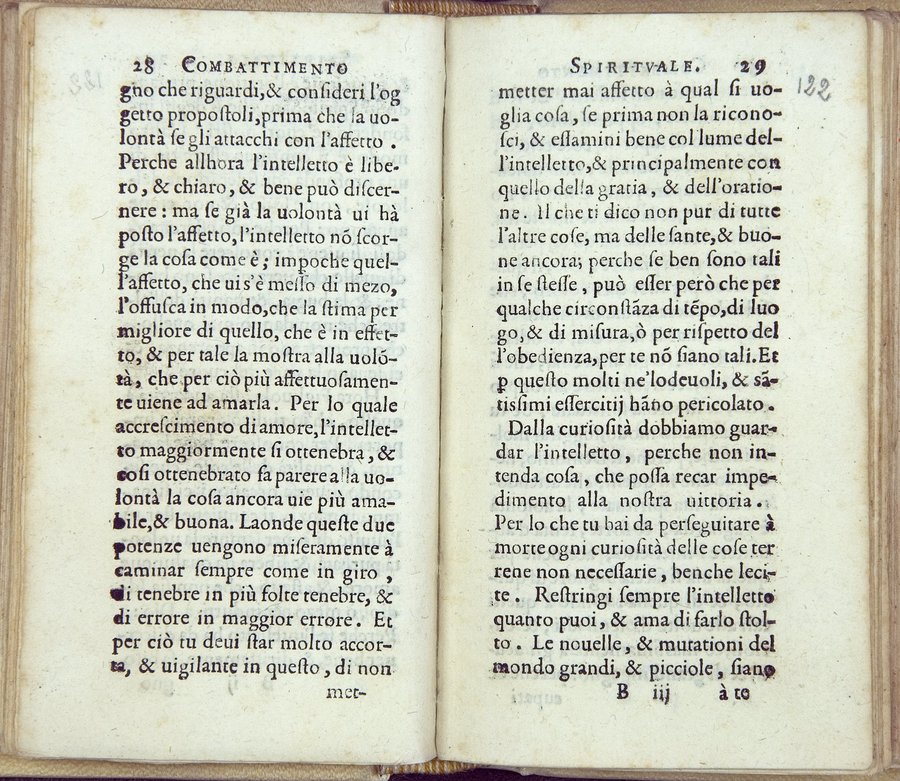 28 COMBATTIMENTO
gno che riguardi,& conſideri l'og
getto propoſtoli,prima che la uo-
lontà ſe gli attacchi con l'affetto .
Perche allhora l'intelletto è libe-
ro, & chiaro, & bene può diſcer-
nere : ma ſe già la uolontà ui hà
poſto l'affetto, l'intelletto nõ ſcor-
ge la coſa come è; impoche quel-
l'affetto, che ui s'è meſſo di mezo,
l'offuſca in modo,che la ſtima per
migliore di quello, che è in effet-
to, & per tale la moſtra alla uolõ-
tà, che per ciò più affettuoſamen-
te uiene ad amarla. Per lo quale
accreſcimento di amore,l'intellet-
to maggiormente ſi ottenebra, &
coſi ottenebrato fa parere alla uo-
lontà la coſa ancora uie più ama-
bile,& buona. Laonde queſte due
potenze uengono miſeramente à
caminar ſempre come in giro ,
di tenebre in più folte tenebre, &
di errore in maggior errore. Et
per ciò tu deui ſtar molto accor-
ta, & uigilante in queſto, di non
met-
SPIRITVALE. 29
122
metter mai affetto à qual ſi uo-
glia coſa, ſe prima non la ricono-
ſci, & eſſamini bene col lume del-
l'intelletto,& principalmente con
quello della gratia, & dell'oratio-
ne. Il che ti dico non pur di tutte
l'altre coſe, ma delle ſante,& buo-
ne ancora; perche ſe ben ſono tali
in ſe ſteſſe, può eſſer però che per
qualche circonſtãza di tẽpo,di luo
go,& di miſura,ò per riſpetto del
l'obedienza,per te nõ ſiano tali.Et
ꝑ queſto molti ne'lodeuoli, & sã-
tiſſimi eſſercitij hãno pericolato.
Dalla curioſità dobbiamo guar-
dar l'intelletto, perche non in-
tenda coſa, che poſſa recar impe-
dimento alla noſtra uittoria.
Per lo che tu hai da perſeguitare à
morte ogni curioſità delle coſe ter
rene non neceſſarie, benche leci-
te. Reſtringi ſempre l'intelletto
quanto puoi, & ama di farlo ſtol-
to. Le nouelle, & mutationi del
mondo grandi, & picciole, ſiano
B iij à te